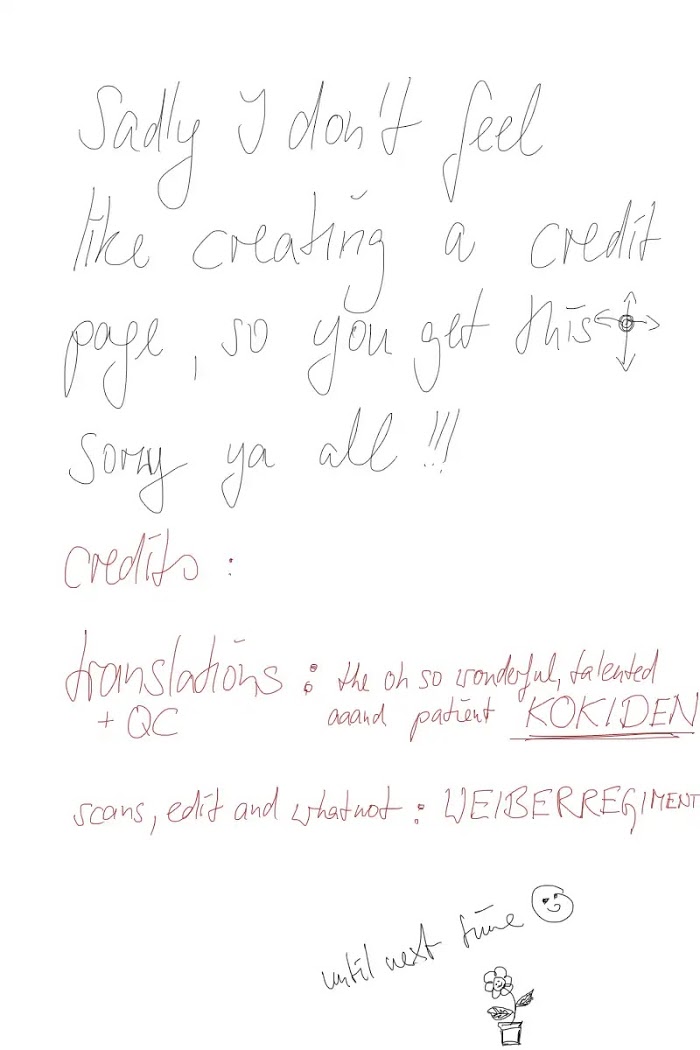 Sadly I don't feel
like creating a credit
page, so you get this
sorry ya all !!!
credits :
translations : the oh so wonderful, talented
+ QC aaand patient KOKIDEN
scans, edit and whatnot : WEIBERREGIMENT
until next time